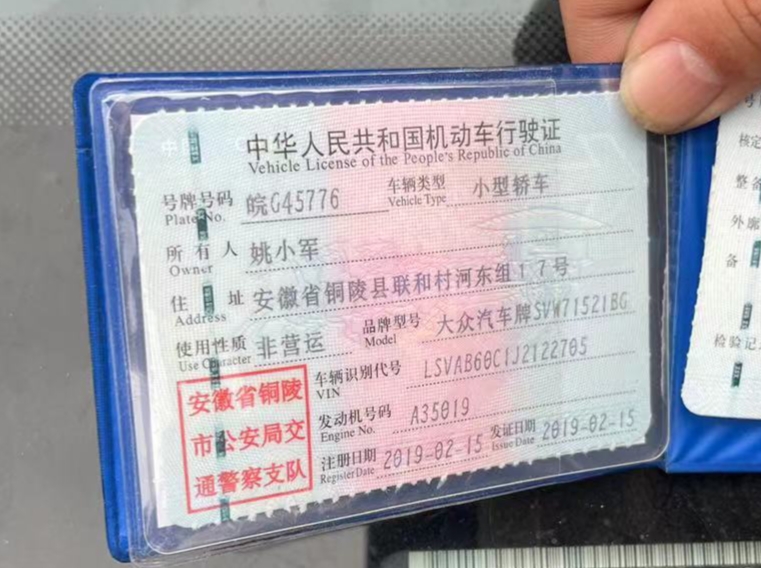 中华人民共和国机动车行驶证
Vehicle License of the People's Republic of China
号牌号码 皖G45776 车辆类型 小型轿车
Plate No. Vehicle Type
所有人 姚小军
Owner
住址 安徽省铜陵县联和村河东组17号
Address
使用性质 非营运 品牌型号 大众汽车牌SVW71521BG
Use Character Model
车辆识别代号 LSVAB60C1J2122705
VIN
发动机号码 A35019
Engine No.
注册日期 2019-02-15 发证日期 2019-02-15
Register Date Issue Date
安徽省铜陵
市公安局交
通警察支队
核定
整备
外廓
备
检验记